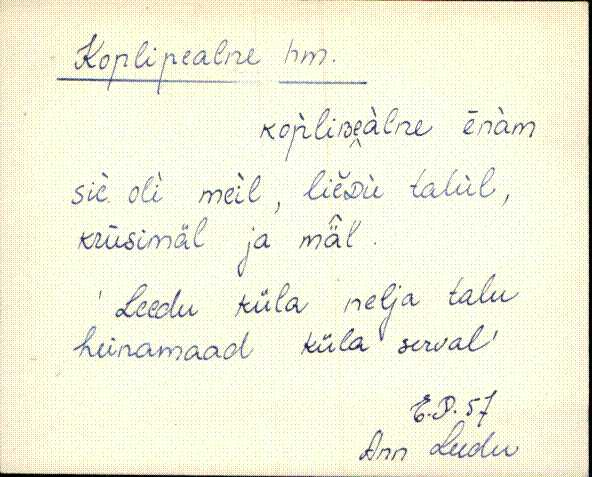 Koplipealne hm.
kòpliʙe̬àlne ēnàm
siè oli meìl, lièᴅù talùl,
krūsimäl ja mä̂l.
'Leedu küla nelja talu
heinamaad küla serval'
E.P. 57
Ann Leedu